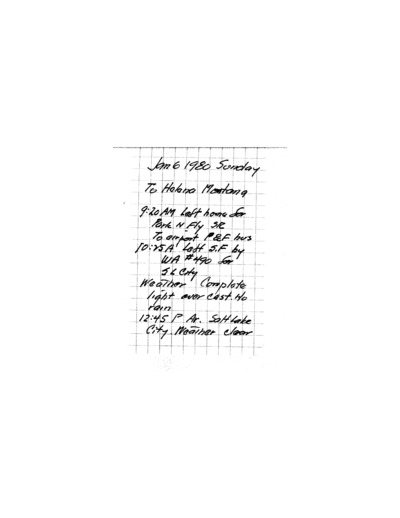 Jan 6 1980 Sunday
To Helena Montana
9:20 AM Left home for
Park N Fly
To airport P&F bus
10:25A Left S.F by
WA #490 for
S L City
Weather Complete
light over cast. No
rain
12:45 P Ar. Salt Lake
City Weather clear